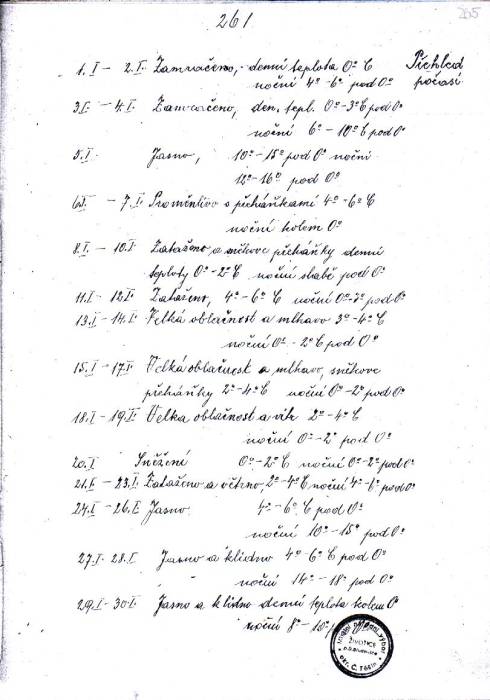 261
205
1. I – 2. I. Zamračeno, denní teplota 0° C Přehled
noční 4° – 6° pod 0° počasí
3. I. – 4. I. Zamračeno, den. tepl. 0° – 3° C pod 0°
noční 6° – 10° C pod 0°
5. I Jasno, 10° – 15° pod 0° noční
12° – 16° pod 0°
6. I. – 7. I. Proměnlivo s přeháňkami 4° – 6° C
noční kolem 0°
8. I. – 10. I. Zataženo, a sněhové přeháňky denní
teploty 0° – 2° C noční slabě pod 0°
11. I – 12. I. Zataženo, 4° – 6° C noční 0° – 7° pod 0°
13. I – 14. I. Velká oblačnost a mlhavo 3° – 4° C
noční 0° – 2° C pod 0°
15. I – 17. I. Velká oblačnost a mlhavo, sněhové
přeháňky 2° – 4° C noční 0° – 2° pod 0°
18. I – 19. I. Velka oblačnost a vítr 2° – 4° C
noční 0° – 2° pod 0°
20. I Sněžení 0° – 2° C noční 0° – 2° pod 0°
21. I. – 23. I. Zataženo a větrno, 2° – 4° C noční 4° – 6° pod 0°
24. I – 26. I. Jasno 4° – 6° C pod 0°
noční 10° – 15° pod 0°
27. I – 28. I Jasno a klidno 4° – 6° C pod 0°
noční 14° – 18° pod 0°
29. I – 30. I Jasno a klidno denní teplota kolem 0°
noční 8° – 10°
ŽIVOTICE